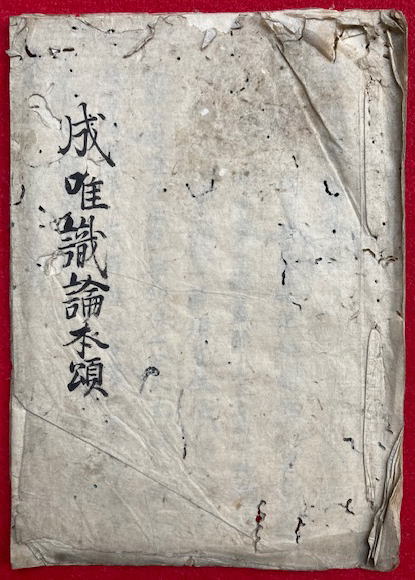 成唯識論本頌